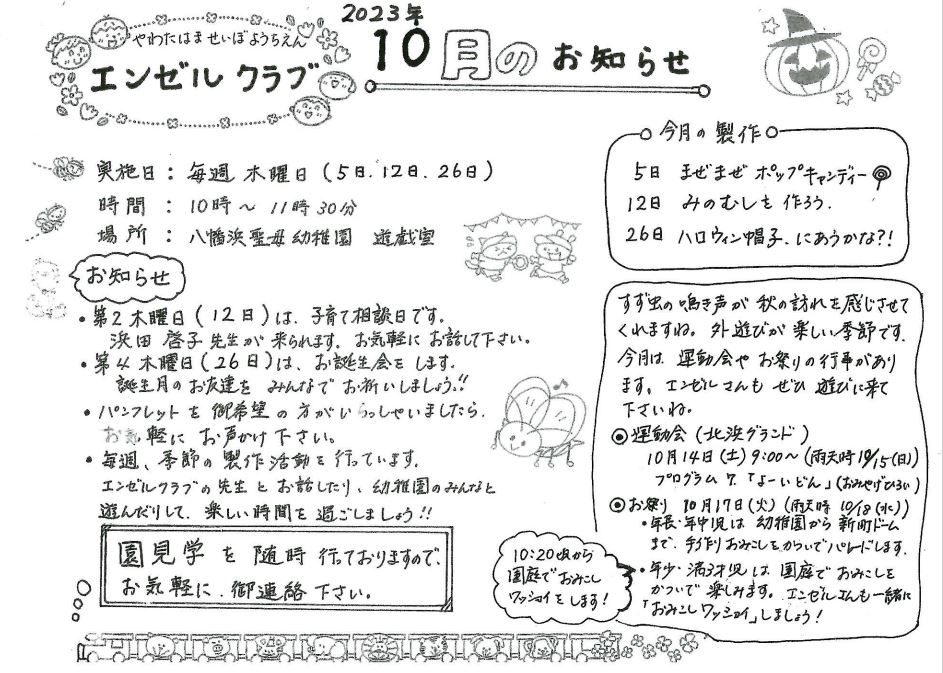 2023年
やわたはませいぼようちえん
エンゼルクラブ
10月のお知らせ
実施日：毎週 木曜日（5日.12日.26日）
時間：10時〜11時30分
場所：八幡浜聖母幼稚園 遊戯室
今月の製作
5日 まぜまぜ ポップキャンディー
12日 みのむしを作ろう.
26日 ハロウィン帽子、にあうかな?!
お知らせ
・第2木曜日(12日)は、子育て相談日です。
浜田 啓子先生が来られます。お気軽にお話して下さい。
・第4木曜日(26日)は、お誕生会をします。
誕生月のお友達を みんなで お祈いしましょう!!
・パンフレットを御希望の方がいらっしゃいましたら、
お気軽に お声かけ下さい。
・毎週、季節の製作活動を行っています。
エンゼルクラブの先生とお話したり、幼稚園のみんなと
遊んだりして、楽しい時間を過ごしましょう!!
園見学を随時行っておりますので、
お気軽に、御連絡下さい。
すず虫の鳴き声が 秋の訪れを感じさせて
くれますね。外遊びが楽しい季節です.
今月は 運動会や お祭りの行事があり
ます。エンゼルさんも ぜひ 遊びに来て
下さいね。
◉運動会（北浜グランド）
10月14日(土) 9:00〜(雨天時10/15(日))
プログラム 7.「よーいどん」(おみやげひろい)
◉お祭り 10月17日(火)(雨天時 10/18(水))
・年長・年中児は 幼稚園から 新町ドーム
まで、手作りおみこしをかついでパレードします.
・年少・満3才児は、園庭で おみこしを
かついで楽しみます。エンゼルさんも一緒に
「おみこしワッショイ」しましょう!
10:20頃から
園庭でおみこし
ワッショイをします!